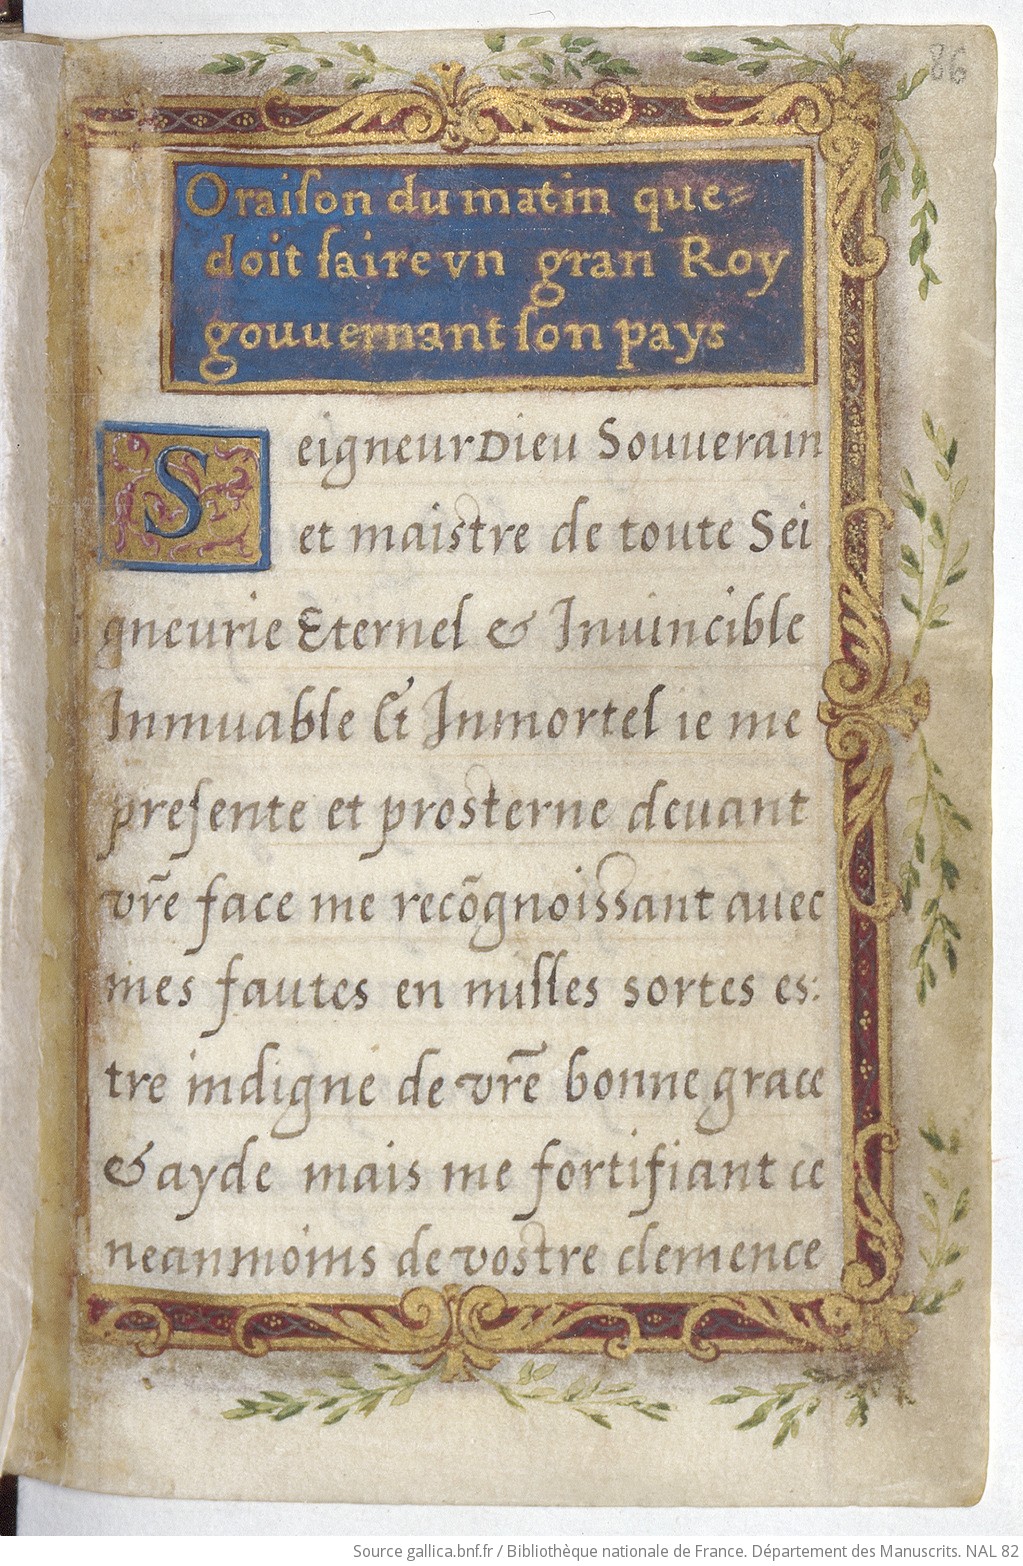 86
Oraiſon du matin que=
doit faire vn gran Roy
gouuernant ſon pays
Seigneur Dieu Souuerain
et maistre de toute Sei
gneurie Eternel & Inuincible
Inmuable Et Inmortel ie me
preſente et prosterne deuant
vr̃e face me recõgnoissant auec
mes fautes en milles sortes es:
tre indigne de vr̃e bonne grace
& ayde mais me fortifiant ce
neanmoins de vostre clemence
Source gallica.bnf.fr / Bibliothèque nationale de France. Département des Manuscrits. NAL 82